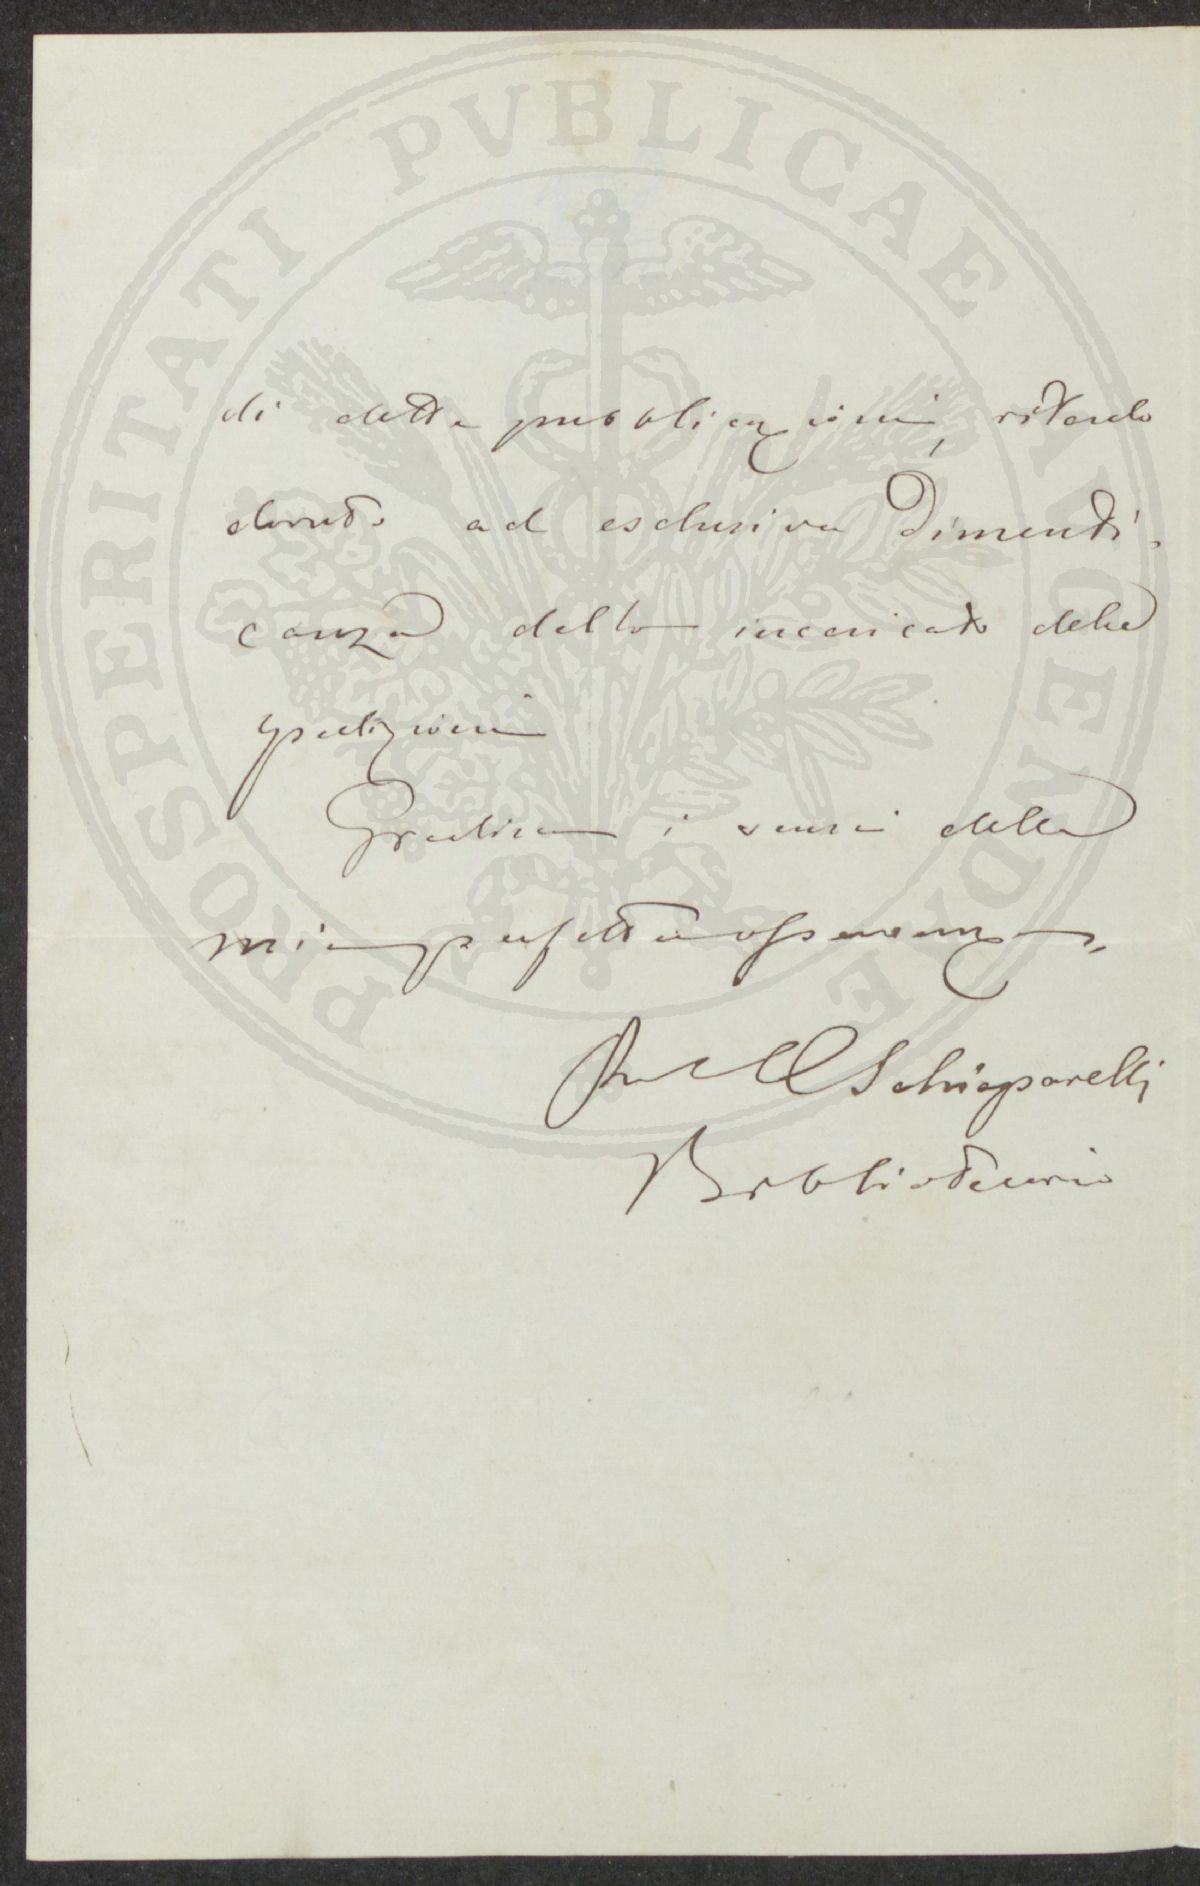 PROSPERITATI PVBLICAE AVGENDAE
di dette pubblicazioni, ritardo
dovuto ad esclusiva Dimenti-
canza dello incaricato delle
spedizioni
Gradisca i sensi della
mia perfetta osservanza,
Schiaparelli
Bibliotecario